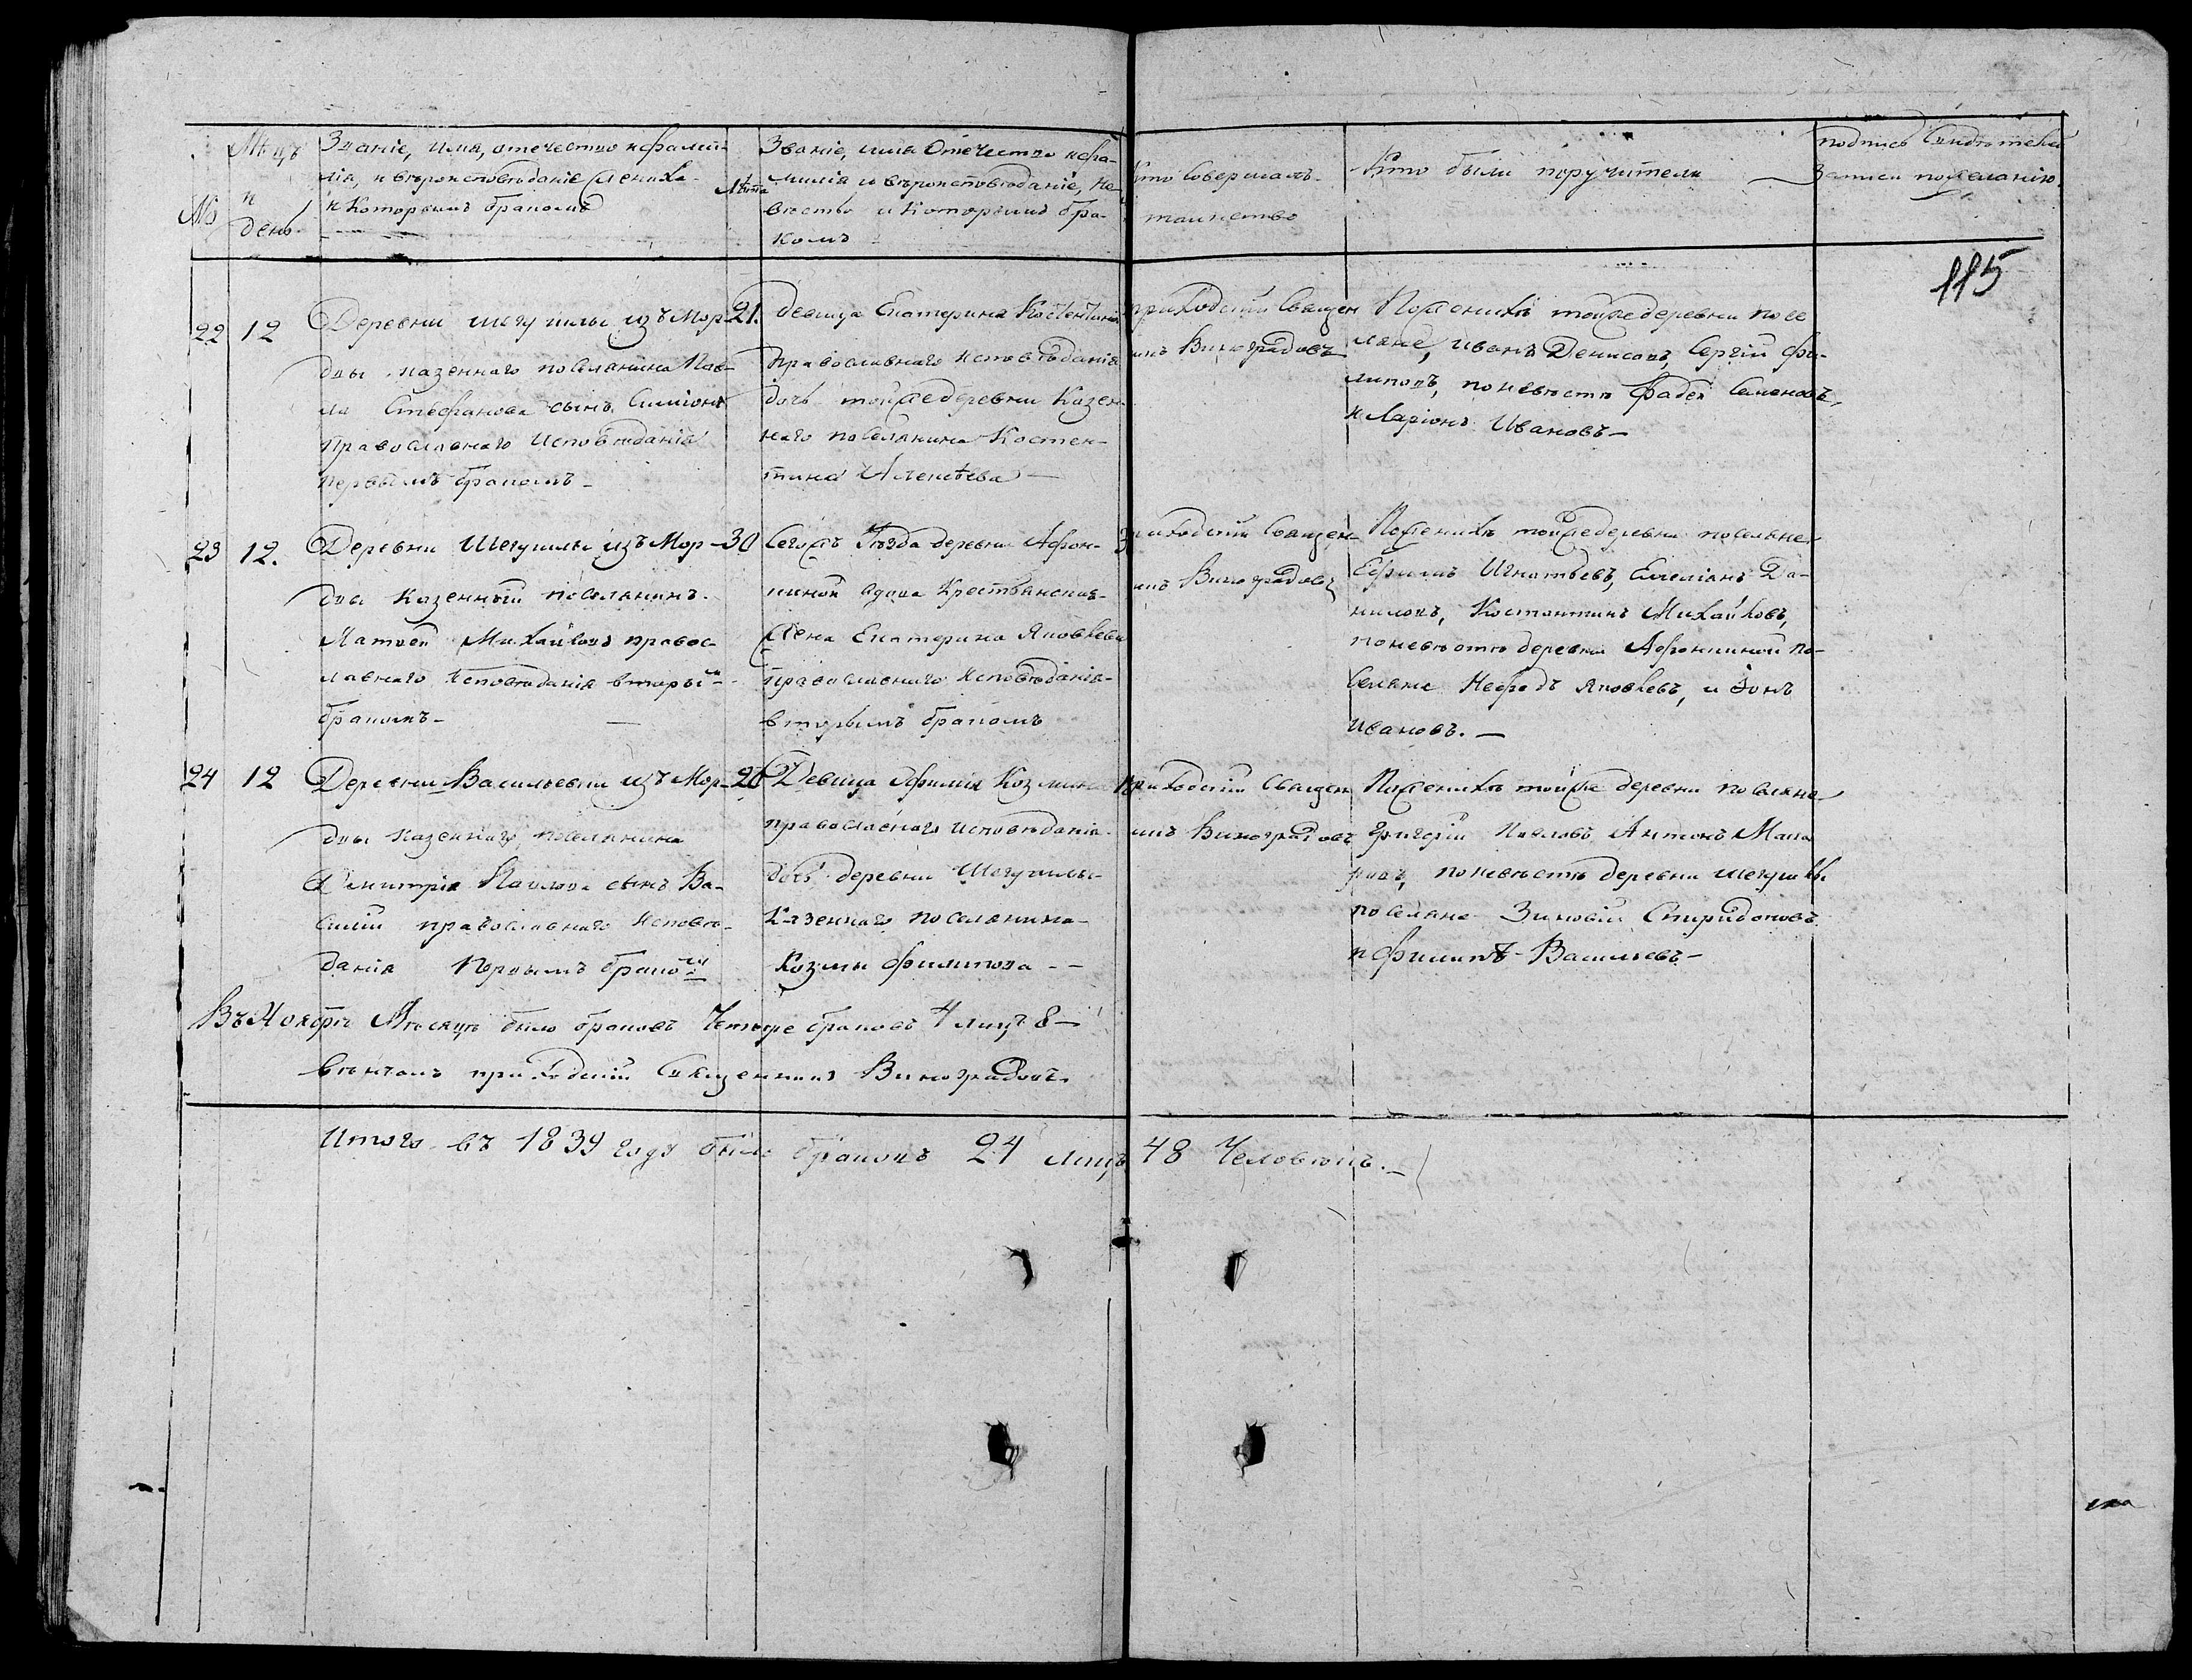 №
Мѣцъ
и
день
Званіе, имя, отечество и фами-
лія, и вѣроисповѣданіе жениха
и Которымъ бракомъ
Лѣта
Званіе, имя Отечество и фа-
милія и вѣроисповѣданіе, не-
вѣсты и Которымъ бра-
комъ
Кто Совершалъ
таинство
Кто были поручители
подпись Свидѣтелей
Записи по желанію
115
22
12
Деревни Шегушлы изъ Морд-
вы казеннаго поселянина Пав-
ла Стефанова сынъ Симіонъ
православнаго Исповѣданія
первымъ бракомъ
21.
девица Екатерина Костентинова
православнаго исповѣданія
дочь той же деревни Казен-
наго поселянина Костен-
тина Алексѣева
приходскій Священ
никъ Виноградовъ
По женихѣ той же деревни посе
ляне, Иванъ Денисовъ, Сергій Фи-
липовъ, по невѣстѣ Фадей Семеновъ,
и Ларіонъ Ивановъ
23
12.
Деревни Шегушлы изъ Мор-
двы Казенный поселянинъ
Матвей Михайловъ правос
лавнаго исповѣданія вторымъ
бракомъ
30
Сегожъ Уѣзда деревни Афон-
киной вдова Крестьянская
жена Екатерина Яковлева
православнаго исповѣданія
вторымъ бракомъ
приходскій Священ
никъ Виноградовъ
По женихѣ той же деревни поселяне
Ефимъ Игнатьевъ, Емеліянъ Да-
ниловъ, Костантинъ Михайловъ,
по невѣстѣ деревни Афонкиной по-
селяне Нефедъ Яковлевъ, и Іонъ
Ивановъ.
24
12
Деревни Васильевки изъ Мор-
двы казеннаго поселянина
Димитрія Павлова сынъ Ва-
силій православнаго исповѣ-
данія Первымъ бракомъ
20
Девица Афимія Козмина
православнаго исповѣданія
дочь деревни Шегушлы
Казеннаго поселянина
Козмы Филипова
приходскій Священ
никъ Виноградовъ
По женихѣ той же деревни поселяне
Григорій Павловъ, Антонъ Мака
ровъ, по невѣстѣ деревни Шегушлы
поселяне Зиновій Спиридоновъ
и Филипъ Васильевъ
Въ Ноябрѣ Мѣсяцѣ было браковъ Четыре браковъ 4 лицъ 8
вѣнчалъ приходскій Священникъ Виноградовъ.
Итого въ 1839 году было браковъ 24 лицъ 48 Человѣкъ.